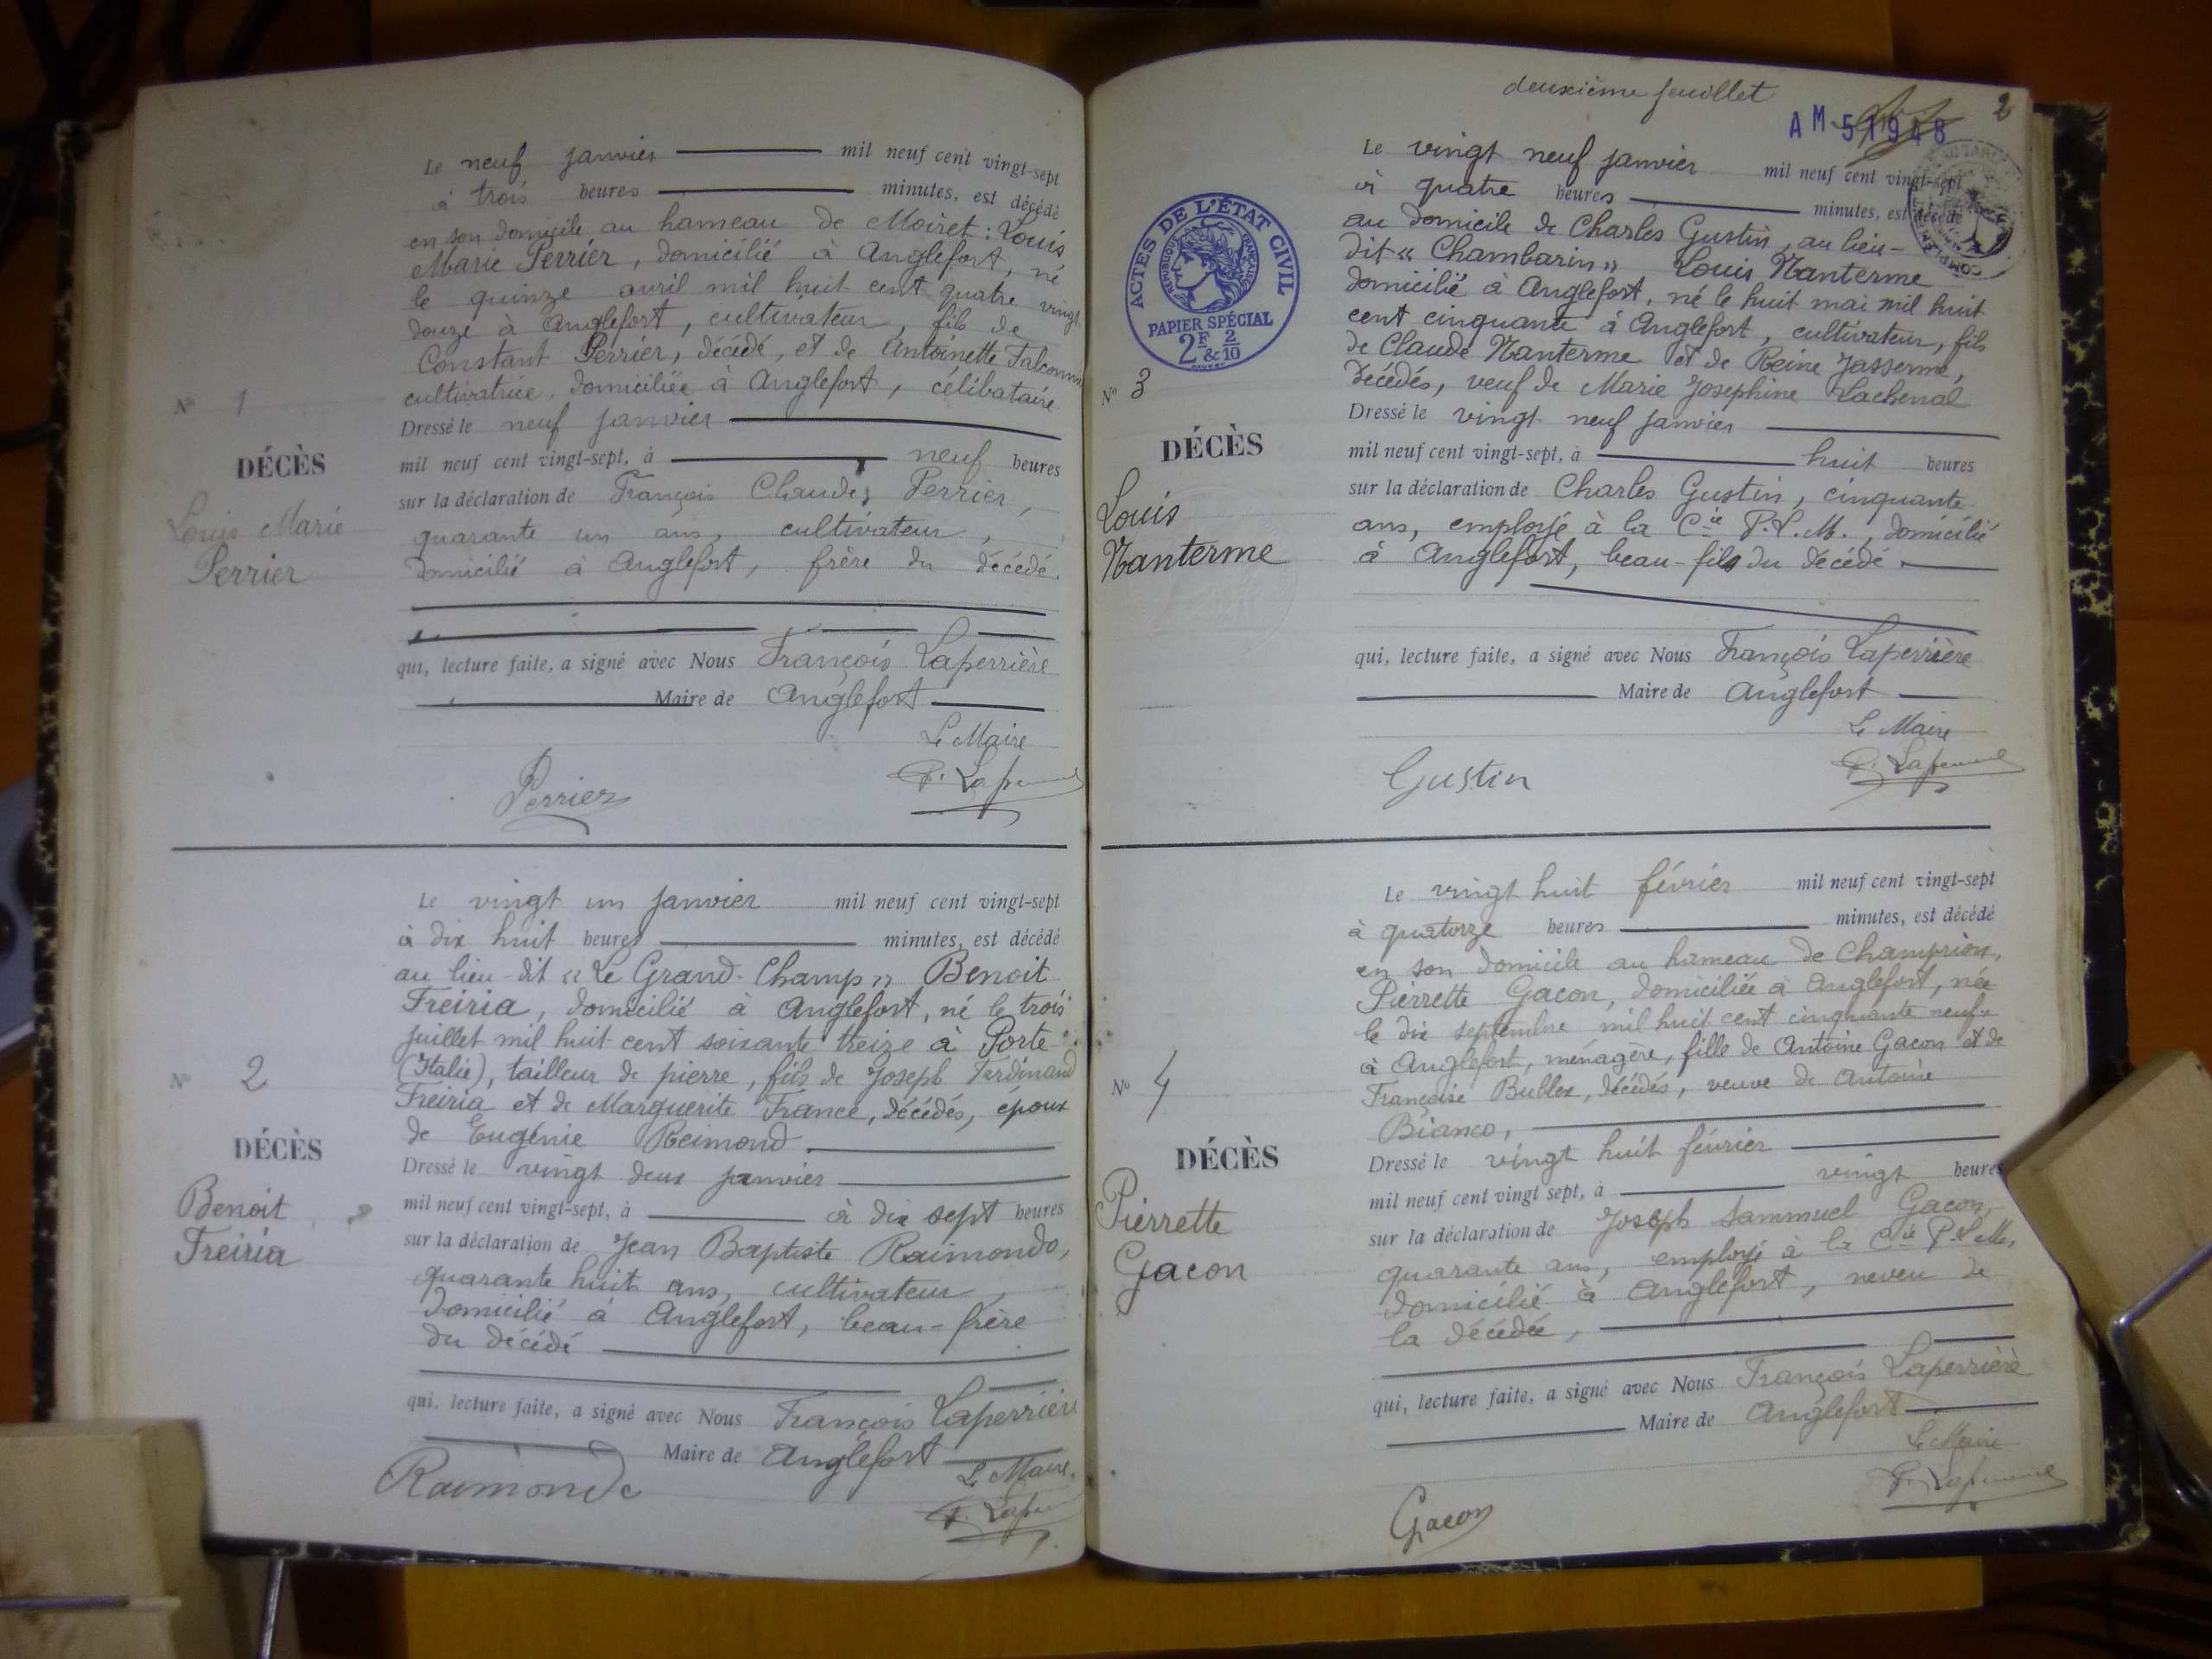 Le neuf janvier mil neuf cent vingt-sept
à trois heures minutes, est décédé
en son domicile au hameau de Moiret : Louis
Marie Perrier, domicilié à Anglefort, né
le quinze avril mil huit cent quatre vingt
douze à Anglefort, cultivateur, fils de
Constant Perrier, décédé, et de Antoinette
cultivatrice, domiciliée à Anglefort, célibataire
Dressé le neuf janvier
mil neuf cent vingt-sept, à neuf heures
sur la déclaration de François Claude Perrier,
quarante un ans, cultivateur,
domicilié à Anglefort, frère du décédé.
qui, lecture faite, a signé avec Nous François Laperrière
Maire de Anglefort
Le Maire
Perrier
N° 1
DÉCÈS
Louis Marie
Perrier
Le vingt un janvier mil neuf cent vingt-sept
à dix huit heures minutes, est décédé
au lieu-dit « Le Grand Champ » Benoit
Freiria, domicilié à Anglefort, né le trois
juillet mil huit cent soixante treize à Porte
(Italie), tailleur de pierre, fils de Joseph Ferdinand
Freiria et de Marguerite France, décédés, époux
de Eugénie Reimond.
Dressé le vingt deux janvier
mil neuf cent vingt-sept, à à dix sept heures
sur la déclaration de Jean Baptiste Raimondo,
quarante huit ans, cultivateur,
domicilié à Anglefort, beau-frère
du décédé
qui, lecture faite, a signé avec Nous François Laperrière
Maire de Anglefort
Le Maire.
Raimondo
N° 2
DÉCÈS
Benoit
Freiria
deuxième feuillet
2
AM 5 1948
Le vingt neuf janvier mil neuf cent vingt-sept
à quatre heures minutes, est décédé
au domicile de Charles Gustin, au lieu-
dit « Chambarin » Louis Nanterme
domicilié à Anglefort, né le huit mai mil huit
cent cinquante à Anglefort, cultivateur, fils
de Claude Nanterme et de Reine Jasserme,
décédés, veuf de Marie Josephine Lachenal
Dressé le vingt neuf janvier
mil neuf cent vingt-sept, à huit heures
sur la déclaration de Charles Gustin, cinquante
ans, employé à la Cie P.L.M., domicilié
à Anglefort, beau-fils du décédé.
qui, lecture faite, a signé avec Nous François Laperrière
Maire de Anglefort
Le Maire
Gustin
ACTES DE L'ÉTAT CIVIL
RÉPUBLIQUE FRANÇAISE
PAPIER SPÉCIAL
2F & 2/10
N° 3
DÉCÈS
Louis
Nanterme
Le vingt huit février mil neuf cent vingt-sept
à quatorze heures minutes, est décédé
en son domicile au hameau de Champrion,
Pierrette Gacon, domiciliée à Anglefort, née
le dix septembre mil huit cent cinquante neuf
à Anglefort, ménagère, fille de Antoine Gacon et de
Françoise Bullex, décédés, veuve de Antoine
Bianco,
Dressé le vingt huit février
mil neuf cent vingt sept, à vingt heures
sur la déclaration de Joseph Sammuel Gacon,
quarante ans, employé à la Cie P.L.M.,
domicilié à Anglefort, neveu de
la décédée,
qui, lecture faite, a signé avec Nous François Laperrière
Maire de Anglefort
Le Maire
Gacon
N° 4
DÉCÈS
Pierrette
Gacon